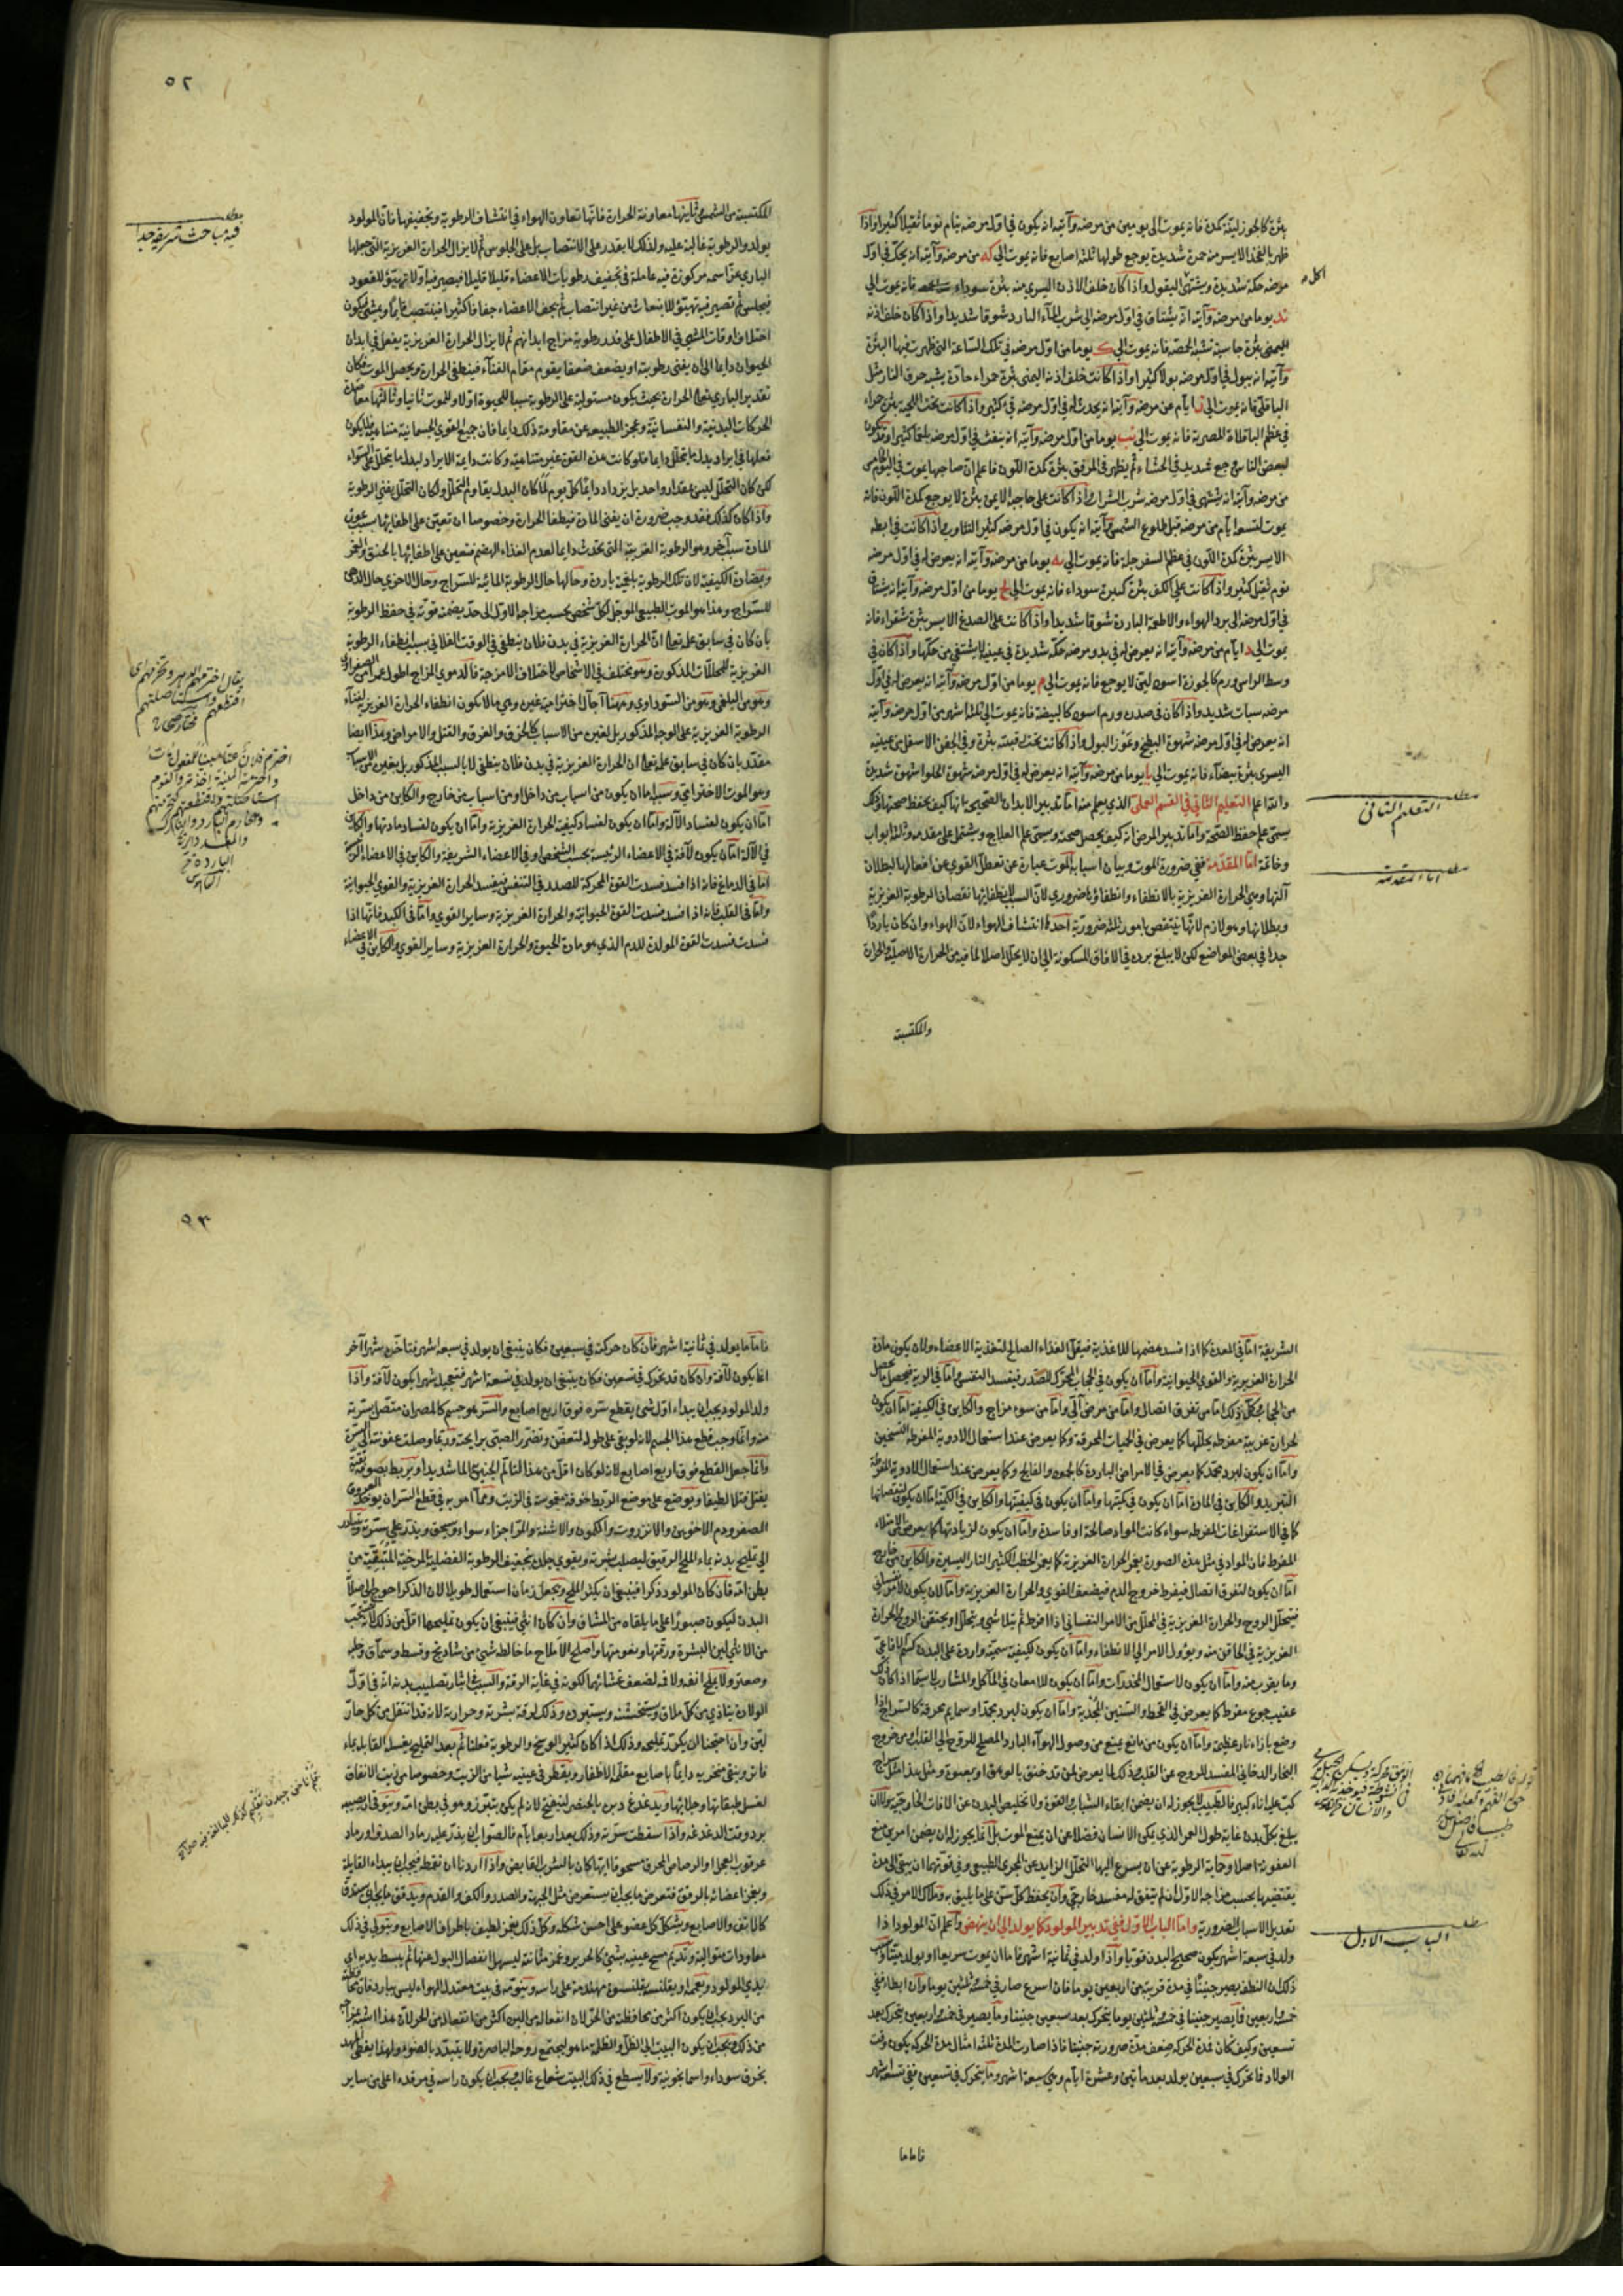 بثرة كالجوز لينة كمدة فانه يموت الى يومين من مرضه وآيته انه يكون في اول مرضه ينام نوما ثقيلا كثيرا واذا
ظهر بالفخذ الايسر منه حمرة شديدة يوجع طولها ثلثة اصابع فانه يموت الى كه من مرضه وآيته انه يحك في اول
مرضه حكة شديدة ويشتهي البقول واذا كان خلف الاذن اليسرى منه بثرة سوداء فانه يموت الى
يوما من مرضه وآيته انه يشتاق في اول مرضه الى شرب الماء البارد شوقا شديدا واذا كان خلف اذنه
اليمنى بثرة جاسية تشبه الحمصة فانه يموت الى ك يوما من اول مرضه في تلك الساعة التي ظهرت فيها البثرة
وآيته انه يبول في اول مرضه بولا كثيرا واذا كانت خلف اذنه اليمنى بثرة حمراء حادة يشبه حرق النار مثل
الباقلى فانه يموت الى ايام من مرضه وآيته انه يحدث له في اول مرضه قيء كثير واذا كانت تحت اللحية بثرة حمراء
في عظم الباقلاة المصرية فانه يموت الى نب يوما من اول مرضه وآيته انه ينفث في اول مرضه بلغما كثيرا وقد يكون
لبعض الناس وجع شديد في الحشاء ثم يظهر في المرفق بثرة كمدة اللون فاعلم ان صاحبها يموت في اليوم
من مرضه وآيته انه يشتهي في اول مرضه شرب الشراب واذا كانت على حاجبه الايمن بثرة لا يوجع كمدة اللون فانه
يموت لتسعة ايام من مرضه قبل طلوع الشمس وآيته انه يكون في اول مرضه كثير التثاوب واذا كانت في ابطه
الايسر بثرة كمدة اللون في عظم السفرجلة فانه يموت الى يوما من مرضه وآيته انه يعرض له في اول مرضه
نوم ثقيل كثير واذا كانت على الكف بثرة كبيرة سوداء فانه يموت الى يوما من اول مرضه وآيته انه يشتاق
في اول مرضه الى برد الهواء والاطعمة الباردة شوقا شديدا واذا كانت على الصدغ الايسر بثرة شقراء فانه
يموت الى د ايام من مرضه وآيته انه يعرض له في بدو مرضه حكة شديدة في عينيه لا يشتفي من حكها واذا كان في
وسط الراس ورم كالجوزة اسود لين لا يوجع فانه يموت الى م يوما من اول مرضه وآيته انه يعرض له في اول
مرضه سبات شديد واذا كان في صدره ورم اسود كالبيضة فانه يموت الى ثلثة اشهر من اول مرضه وآيته
انه يعرض له في اول مرضه شهوة البطيخ وغزر البول واذا كانت تحت بثرة وفي الجفن الاسفل من عينيه
اليسرى بثرة بيضاء فانه يموت الى يا يوما من مرضه وآيته انه يعرض له في اول مرضه شهوة الحلو شهوة شديدة
والله اعلم التعليم الثاني في القسم العملي الذي يعلم منه اما تدبير الابدان الصحيحة بانها كيف يحفظ صحتها وذلك
يسمى علم حفظ الصحة واما تدبير المرض انه كيف يحصل صحته ويسمى علم العلاج ويشتمل على مقدمة وثلثة ابواب
وخاتمة اما المقدمة ففي ضرورة الموت وبيان اسبابه الموت عبارة عن تعطل القوى عن افعالها لبطلان
آلتها وهي الحرارة الغريزية بالانطفاء وانطفاؤها ضروري لان السبب لانطفائها نقصان الرطوبة الغريزية
وبطلانها وهو لازم لانها ينتقص بامور ثلثة ضرورية احدها انتشاف الهواء لان الهواء وان كان باردا
جدا في بعض المواضع لكن لا يبلغ برده في الافاق المسكونة الى ان لا يحلل اصلا لما فيه من الحرارة الاصلية والحرارة
والمكتسبة
مطلب
التعليم الثاني
مطلب
اما المقدمة
٥٢
المكتسبة من الشمس ثانيها معاونة الحرارة فانها تعاون الهواء في انتشاف الرطوبة وتجفيفها فان المولود
يولد والرطوبة غالبة عليه ولذلك لا يقدر على الانتصاب بل على الجلوس ثم لا يزال الحرارة الغريزية التي جعلها
الباري عز اسمه مركوزة فيه عاملة في تجفيف رطوبات الاعضاء قليلا قليلا فيصير فيه اولا تهيؤ للقعود
فيجلس ثم تصير فيه تهيؤ للانبعاث من غير انتصاب ثم يجف الاعضاء جفافا كثيرا فينتصب قايما ويمشي ويكون
اختلاف اوقات المشي في الاطفال على قدر رطوبة مزاج ابدانهم ثم لا يزال الحرارة الغريزية يفعل في ابدان
الحيوان دايما الى ان يفنى رطوبته او يضعف ضعفا يقوم مقام الفناء فينطفي الحرارة ويحصل الموت فكان
تقدير الباري تعالى الحرارة بحيث يكون مستولية على الرطوبة سببا للحيوة اولا وللموت ثانيا وثالثها معاضدة
الحركات البدنية والنفسانية وعجز الطبيعة عن مقاومة ذلك دايما فان جميع القوى الجسمانية متناهية فلا يكون
فعلها في ايراد بدل ما يتحلل دايما فلو كانت هذه القوة غير متناهية وكانت دايمة الايراد لبدل ما يتحلل على السواء
لكن كان التحلل ليس بمقدار واحد بل يزداد دايما كل يوم لما كان البدل يقاوم التحلل ولكان التحلل يفني الرطوبة
واذا كان كذلك فقد وجب ضرورة ان يفنى المادة فيطفأ الحرارة وخصوصا ان تعين على اطفائها بسبب عون
المادة سبب آخر وهو الرطوبة الغريبة التي تحدث دايما لعدم الغذاء الهضم فتعين على اطفائها بالخنق والغمر
وبمضادة الكيفية لان تلك الرطوبة بلغمية باردة وحالها حال الرطوبة المائية للسراج وحال الاخرى حال الدهن
للسراج وهذا هو الموت الطبيعي المؤجل لكل شخص بحسب مزاجه الاول الى حد يضمنه قوته في حفظ الرطوبة
بان كان في سابق علمه تعالى ان الحرارة الغريزية في بدن فلان ينطفي في الوقت الفلاني بسبب انطفاء الرطوبة
الغريزية للمحللات المذكورة وهو يختلف في الاشخاص لاختلاف الامزجة فالدموي المزاج اطول عمرا من الصفراوي
وهو من البلغمي وهو من السوداوي وههنا آجال اخترامية غيره وهي ما لا يكون انطفاء الحرارة الغريزية لفناء
الرطوبة الغريزية على الوجه المذكور بل لغيره من الاسباب كالحرق والغرق والقتل والامراض وهذا ايضا
مقدر بان كان في سابق علمه تعالى ان الحرارة الغريزية في بدن فلان ينطفي لا بالسبب المذكور بل بغيره من الاسباب
وهو الموت الاخترامي وسببه اما ان يكون من اسباب من داخل او من اسباب من خارج والكاين من داخل
اما ان يكون لفساد الآلة واما ان يكون لفساد كيفية الحرارة الغريزية واما ان يكون لفساد مادتها والكاين
في الآلة اما ان يكون لآفة في الاعضاء الرئيسة بحسب الشخص او في الاعضاء الشريفة والكاين في الاعضاء الرئيسة
اما في الدماغ فانه اذا فسد فسدت القوة المحركة للصدر في التنفس فيفسد الحرارة الغريزية والقوى الحيوانية
واما في القلب فانه اذا فسد فسدت القوة الحيوانية والحرارة الغريزية وساير القوى واما في الكبد فانها اذا
فسدت فسدت القوة المولدة للدم الذي هو مادة الحيوة والحرارة الغريزية وساير القوى والكاين في الاعضاء
مطلب
فيه مباحث شريفة جدا
الشريفة اما في المعدة كما اذا فسد هضمها للاغذية فيقل الغذاء الصالح لتغذية الاعضاء ولان يكون مادة
الحرارة الغريزية والقوى الحيوانية واما ان يكون في الحجاب المحرك للصدر فيفسد التنفس واما في الرية
من الحجاب كل ذلك اما من تفرق اتصال واما من مرض آلي واما من سوء مزاج والكاين في الكيفية اما ان يكون
لحرارة غريبة مفرطة يحللها كما يعرض في الحميات المحرقة وكما يعرض عند استعمال الادوية المفرطة التسخين
واما ان يكون لبرد مجمد كما يعرض في الامراض الباردة كالجمود والفالج وكما يعرض عند استعمال الادوية المفرطة
التبريد والكاين في المادة اما ان يكون في كميتها واما ان يكون في كيفيتها والكاين في الكمية اما ان يكون لنقصانها
كما في الاستفراغات المفرطة سواء كانت المواد صالحة او فاسدة واما ان يكون لزيادتها كما يعرض للامتلاء
المفرط فان المواد في مثل هذه الصورة يغمر الحرارة الغريزية كما يغمر الحطب الكثير النار اليسيرة والكاين من خارج
اما ان يكون لتفرق اتصال فيفرط خروج الدم فيضعف القوى والحرارة الغريزية واما لان يكون لامر نفساني
فيتحلل الروح والحرارة الغريزية في المحلل من الامر النفساني اذا افرط ثم يتلاشى ويتحلل او يختنق الروح والحرارة
الغريزية في الخانق منه ويؤول الامر الى الانطفاء واما ان يكون لكيفية سمية واردة على البدن كسم الافاعي
وما يقرب منه واما ان يكون لاستعمال المخدرات واما ان يكون للامعان في المآكل والمشارب لا سيما اذا كان ذلك
عقيب جوع مفرط كما يعرض في القحط والسنين المجدبة واما ان يكون لبرد مجمد او سمايم محرقة كالسراج اذا
وضع بازاء نار عظيمة واما ان يكون من مانع يمنع من وصول الهواء البارد المصلح للروح الى القلب او من خروج
البخار الدخاني المفسد للروح عن القلب وذلك كما يعرض لمن قد خنق بالوهق او بغيره ومثل هذا مثل سراج
كب عليه اناء كبير فالطبيب لا يجوز له ان يضمن ابقاء الشباب والقوة ولا تخليص البدن عن الافات الخارجية ولا ان
يبلغ بكل بدن غاية طول العمر الذي يمكن الانسان فضلا عن ان يمنع الموت بل انما يجوز له ان يضمن امرين منع
العفونة اصلا وحماية الرطوبة عن ان يسرع اليها التحلل الزايد عن المجرى الطبيعي وفي قوتها ان يبقى الى مدة
يقتضيها بحسب مزاجه الاول ان لم يتفق له مفسد خارجي وان يحفظ كل سن على ما يليق به وملاك الامر في ذلك
تعديل الاسباب الضرورية واما الباب الاول ففي تدبير المولود كما يولد الى ان ينهض واعلم ان المولود اذا
ولد في سبعة اشهر يكون صحيح البدن قويا واذا ولد في ثمانية اشهر فاما ان يموت سريعا او يولد ميتا وسبب
ذلك ان النطفة يصير جنينا في مدة قريبة من اربعين يوما فان اسرع صار في خمسة وثلثين يوما وان ابطأ ففي
خمسة واربعين فما يصير جنينا في خمسة وثلثين يوما يتحرك بعد سبعين جنينا وما يصير في خمسة واربعين يتحرك بعد
تسعين وكيف كان فمدة الحركة ضعف مدة صيرورته جنينا فاذا صارت المدة ثلثة امثال مدة الحركة يكون وقت
الولاد فما تحرك في سبعين يولد بعد مأتين وعشرة ايام وهي سبعة اشهر وما يتحرك في تسعين ففي تسعة اشهر
فاما ما
مطلب
الباب الاول
٥٣
فاما ما يولد في ثمانية اشهر فان كان حركته في سبعين فكان ينبغي ان يولد في سبعة اشهر فتاخره شهرا آخر
انما يكون لآفة وان كان قد تحرك في تسعين فكان ينبغي ان يولد في تسعة اشهر فتعجيله شهرا يكون لآفة واذا
ولد المولود يجب ان يبداء اول شيء بقطع سرته فوق اربع اصابع والسر هو جسم كالمصران متصل بسرته
منه وانما وجب قطع هذا الجسم لانه لو بقي على طوله لتعفن وتضرر الصبي برايحته وربما وصلت عفونته الى السرة
وانما جعل القطع فوق اربع اصابع لانه لو كان اقل من هذا التألم الجنين الما شديدا ويربط بصوفة نقية
يفتل فتلا لطيفا ويوضع على موضع الربط خرقة مغموسة في الزيت ومما امر به في قطع السر ان يؤخذ العروق
الصفر ودم الاخوين والانزروت والكمون والاشنة والمر اجزاء سواء يسحق ويذر على سرته ويبادر
الى تمليح بدنه بماء الملح الرقيق ليصلب بشرته ويقوي جلده بتجفيف الرطوبة الفضلية المرخية المتبقية من
بطن امه فان كان المولود ذكرا فينبغي ان يكثر الملح ويجعل زمان استعماله طويلا لان الذكر احوج الى صلابة
البدن ليكون صبورا على ما يلقاه من المشاق وان كان انثى فينبغي ان يكون تمليحها اقل من ذلك لانه يستحب
من الانثى لين البشرة ورقتها ونعومتها واصلح الاملاح ما خالطه شيء من شادنج وقسط وسماق وحلبة
وصعتر ولا يملح انفه ولا فمه لضعف غشائهما لكونه في غاية الرقة والسبب في ايثار تصليب بدنه انه في اول
الولادة يتاذى من كل ملاق ويستخشنه ويستبرده وذلك لرقة بشرته وحرارته لانه قد انتقل من مكان حار
لين وان احتجنا ان يكرر تمليحه وذلك اذا كان كثير الوسخ والرطوبة فعلنا ثم بعد التمليح يغسله القابلة بماء
فاتر وينقي منخريه دايما باصابع مقلمة الاظفار ويقطر في عينيه شيئا من الزيت وخصوصا من زيت الانفاق
لغسل طبقاتها وجلائها ويدغدغ دبره بالخنصر لينفتح لانه لم يكن يتبرز وهو في بطن امه ويتوقى ان يصيبه
برد وقت الدغدغة واذا سقطت سرته وذلك بعد اربعة ايام فالصواب ان يذر عليه رماد الصدف او رماد
عرقوب العجل او الرصاص المحرق مسحوقا ايها كان بالشراب القابض واذا اردنا ان نقمطه فيجب ان يبداء القابلة
ويغمز اعضائه بالرفق فتعرض ما يجب ان يستعرض مثل الجبهة والصدر والكف والقدم ويدقق ما يجب ان يستدق
كالانف والاصابع ويشكل كل عضو على احسن شكله وكل ذلك بغمز لطيف باطراف الاصابع ويتوالى في ذلك
معاودات متوالية وتديم مسح عينيه بشيء كالحرير وغمز مثانته ليسهل انفصال البول عنها ثم يبسط يديه اي
يدي المولود ويعممه او يقلنسه بقلنسوة مهندمة على راسه وينومه في بيت معتدل الهواء ليس ببارد فان محافظته
من البرد يجب ان يكون اكثر من محافظته من الحر لان انفعاله من البرد اكثر من انفعاله من الحر لان هذا اشبه بمزاجه
من ذلك ويجب ان يكون البيت الى الظل والظلمة ما هو ليجتمع روحه الباصرة ولا يتبدد بالضوء ولهذا يغطى المهد
بخرق سوداء واسمانجونية ولا يسطع في ذلك البيت شعاع غالب ويجب ان يكون راسه في مرقده اعلى من ساير